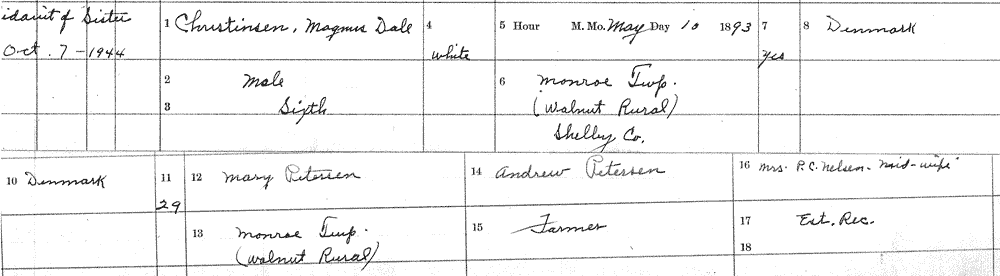 idavit of Sister
Oct. 7-1944
1 Christinsen, Magnus Dale
2 Male
3 Sixth
4
white
5 Hour M. Mo. May Day 10 1893
6 Monroe Twp.
(Walnut Rural)
Shelby Co.
7
yes
8 Denmark
10 Denmark
11
29
12 Mary Petersen
13 Monroe Twp.
(Walnut Rural)
14 Andrew Petersen
15 Farmer
16 Mrs. P.C. Nelsen - Mid-wife
17 Est. Rec.
18